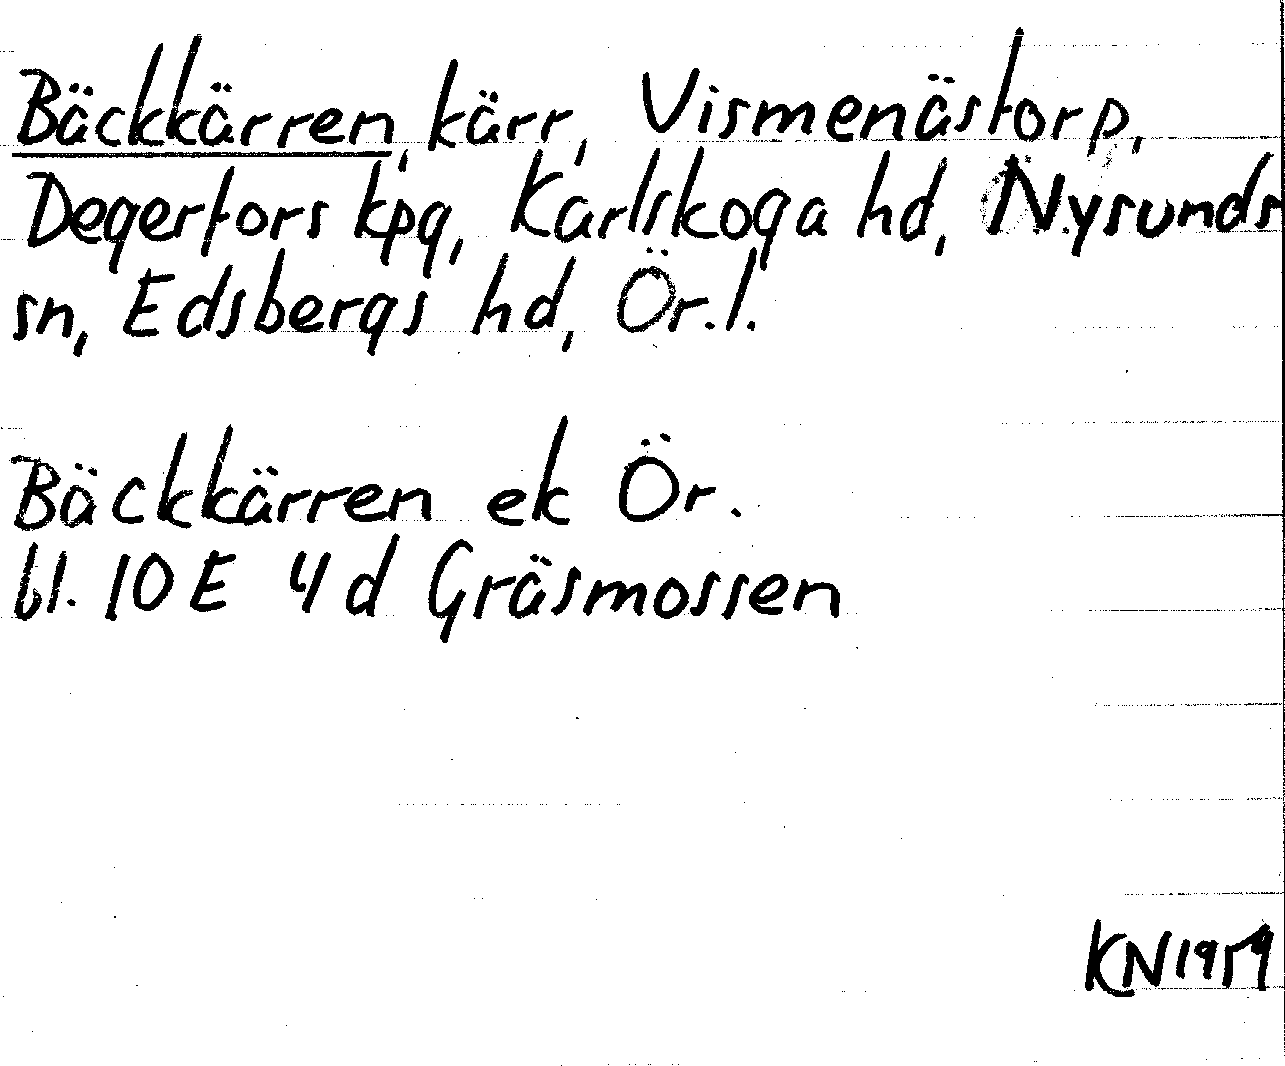 Bäckkärren, kärr, Vismenästorp,
Degerfors kpg, Karlskoga hd, Nysunds
sn, Edsbergs hd, Ör. l.
Bäckkärren ek Ör.
bl. 10 E 4 d Gräsmossen
KN 1959